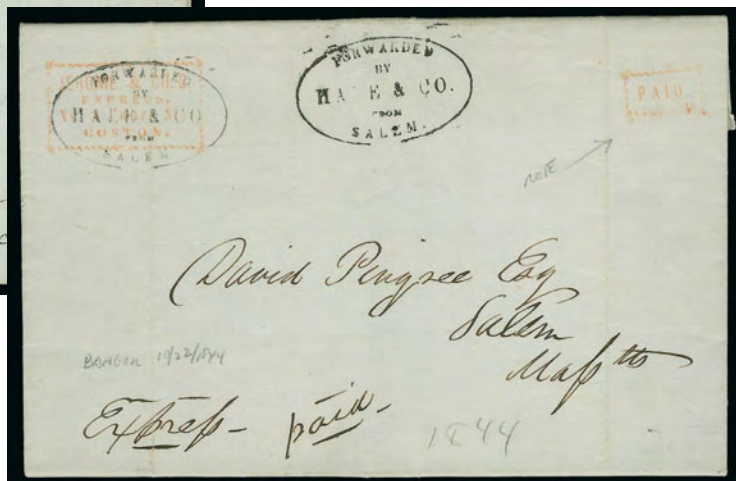 FORWARDED
BY
HALE & CO.
FROM
SALEM.
JEROME & CO'S
EXPRESS,
BOSTON.
FORWARDED
BY
HALE & CO
FROM
SALEM
PAID.
NOTE
David Pingree Esq
Salem
Mass tts
BANGOR 10/22/1844
Express - paid -
1844